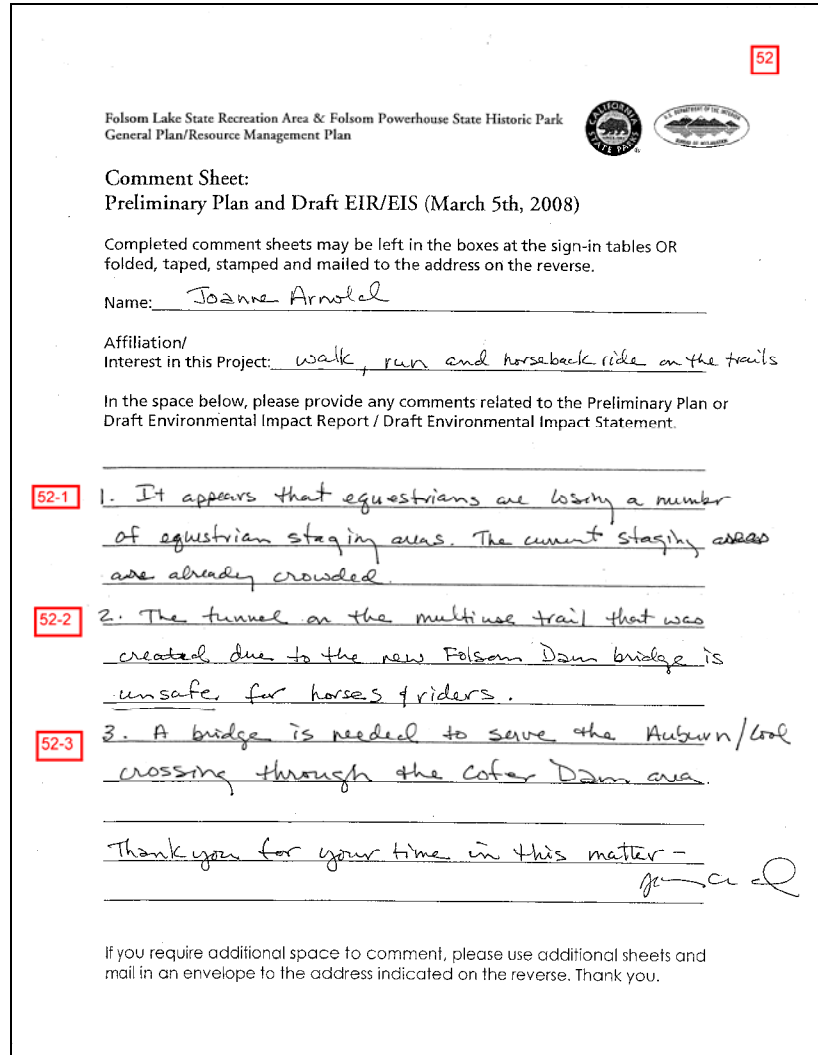 52
Folsom Lake State Recreation Area & Folsom Powerhouse State Historic Park
General Plan/Resource Management Plan
CALIFORNIA STATE PARKS
U.S. DEPARTMENT OF THE INTERIOR
BUREAU OF RECLAMATION
Comment Sheet:
Preliminary Plan and Draft EIR/EIS (March 5th, 2008)
Completed comment sheets may be left in the boxes at the sign-in tables OR
folded, taped, stamped and mailed to the address on the reverse.
Name: Joanne Arnold
Affiliation/
Interest in this Project: walk, run and horseback ride on the trails
In the space below, please provide any comments related to the Preliminary Plan or
Draft Environmental Impact Report / Draft Environmental Impact Statement.
52-1 1. It appears that equestrians are losing a number
of equestrian staging areas. The current staging areas
are already crowded.
52-2 2. The tunnel on the multiuse trail that was
created due to the new Folsom Dam bridge is
unsafe for horses & riders.
52-3 3. A bridge is needed to serve the Auburn/Cool
crossing through the Cofer Dam area.
Thank you for your time in this matter -
If you require additional space to comment, please use additional sheets and
mail in an envelope to the address indicated on the reverse. Thank you.